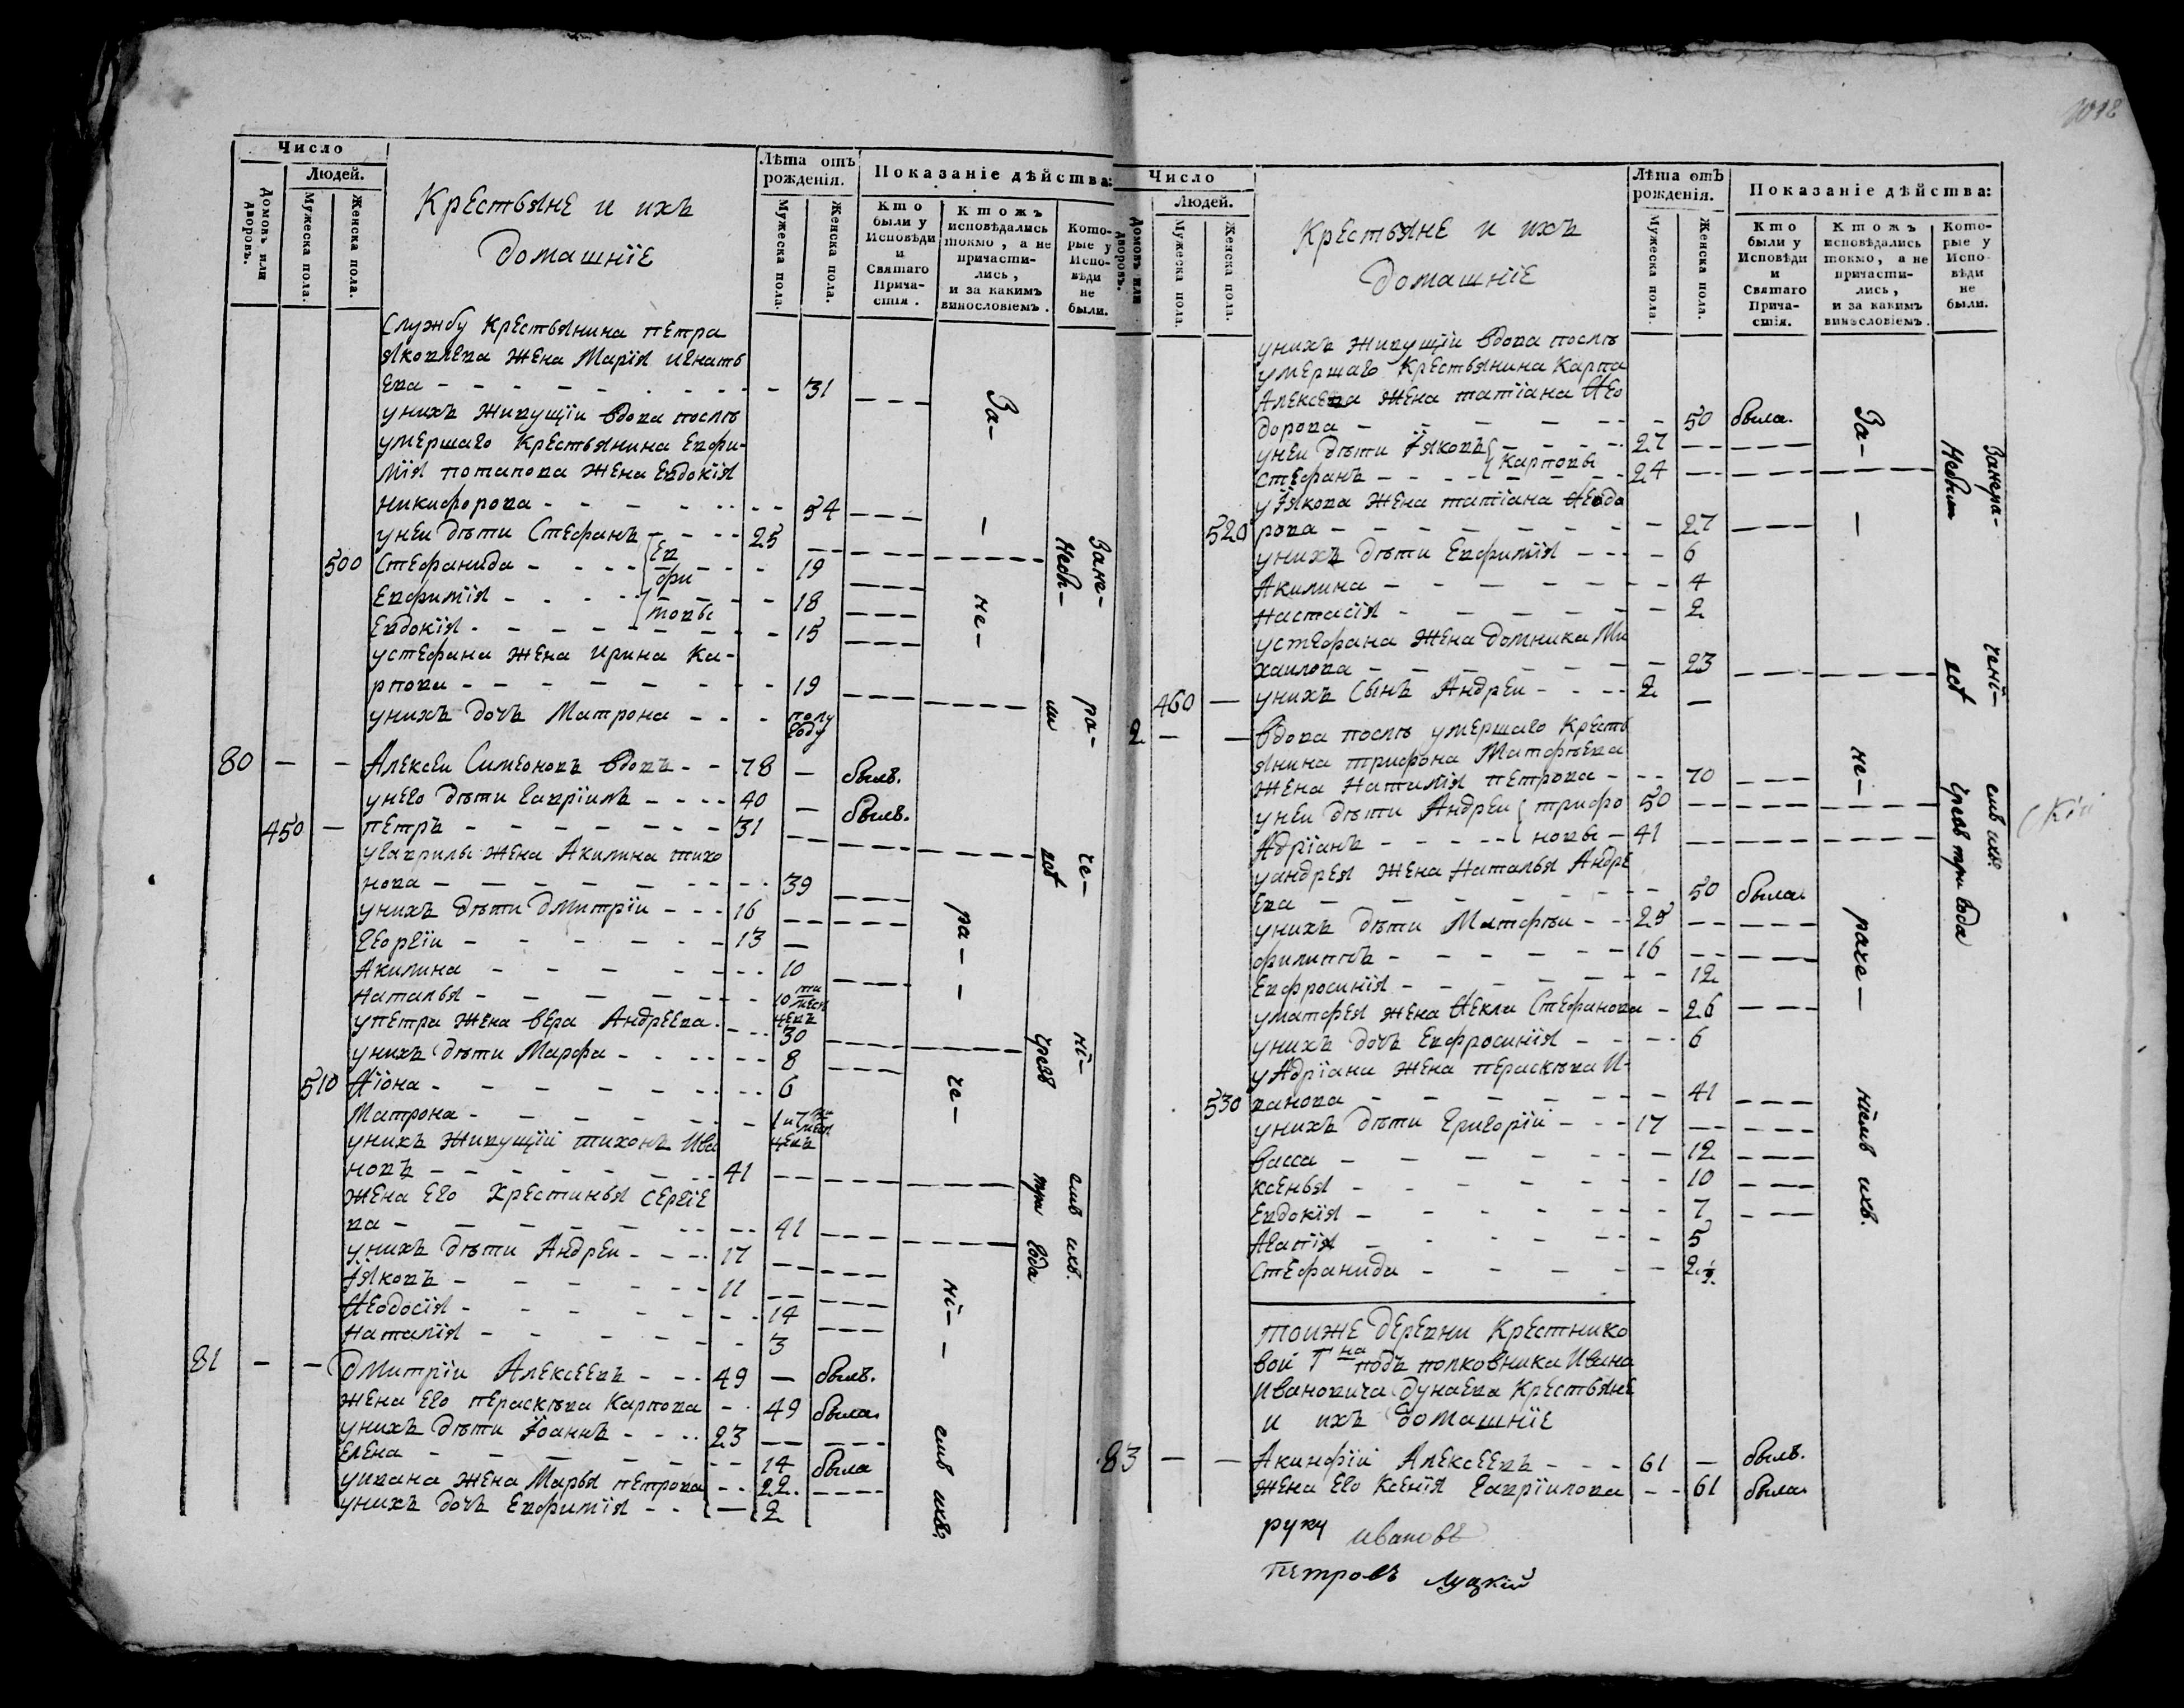 Число
Людей.
Домовъ или дворовъ.
Мужеска пола.
Женска пола.
Крестьяне и ихъ
домашніе
Лѣта отъ
рожденія.
Мужеска пола.
Женска пола.
Показаніе дѣйства:
Кто
были у
Исповѣди
и
Святаго
Прича-
стія.
Ктожъ
исповѣдались
токмо, а не
причасти-
лись,
и за какимъ
винословіемъ.
Кото-
рые у
Испо-
вѣди
не
были.
службу Крестьянина петра
яковлева жена Марія игнать
ева - - - 31
унихъ живущіи вдова послѣ
умершаго Крестьянина Евфи-
мія потапова жена Евдокія
Никифорова - - - 54
унеи дѣти Стефанъ - - - 25
500 Стефанида - - - Ев 19
фи
Евфимія - - - 18
мовы
Евдокія - - - 15
устефана жена ирина Ка-
рпова - - - 19
унихъ дочь Матрона - - - полу
году
80 — — Алексеи Симеоновъ вдовъ - - 78 — былъ.
унего дѣти Гавріилъ - - - 40 — былъ.
450 — петръ - - - 31
угаврилы жена Акилина тихо
нова - - - 39
унихъ дѣти дмитріи - - - 16
Георгіи - - - 13 —
Акилина - - - 10
Наталья - - - 10 ти
меся
цевъ
упетра жена вера Андреева - - - 30
унихъ дѣти Марфа - - - 8
510 Ѳіона - - - 6
Матрона - - - 1 и 7
цевъ
унихъ живущіи тихонъ Ива
новъ - - - 41
жена его Хрестинья сергіе
ва - - - 41
унихъ дѣти Андреи - - - 17
Іяковъ - - - 11
Ѳеодосія - - - 14
Наталія - - - 3
81 — — дмитріи Алексеевъ - - - 49 — былъ.
жена его пераскѣва Карпова - - 49 была.
унихъ дѣти Іоаннъ - - - 23
Елена - - - 14 была
уивана жена Марья петрова - - 22
унихъ дочь Евфимія - - — 2
За-
—
не-
ра-
—
че-
ні-
—
емъ ихъ.
Зане-
ра-
че-
ні-
емъ ихъ.
Небы-
ли
чрезъ
три года
1012
Число
Людей.
Домовъ или дворовъ.
Мужеска пола.
Женска пола.
Крестьяне и ихъ
домашніе
Лѣта отъ
рожденія.
Мужеска пола.
Женска пола.
Показаніе дѣйства:
Кто
были у
Исповѣди
и
Святаго
Прича-
стія.
Ктожъ
исповѣдались
токмо, а не
причасти-
лись,
и за какимъ
винословіемъ.
Кото-
рые у
Испо-
вѣди
не
были.
унихъ живущіи вдова послѣ
умершаго Крестьянина Карпа
Алексева жена татіана Ѳео
дорова - - - 50 была.
унеи дѣти Іяковъ - - - 27
Карповы
Стефанъ - - - 24
уІякова жена татіана Ѳеодо
520 рова - - - 27
унихъ дѣти Евфимія - - - 6
Акилина - - - 4
настасія - - - 2
устефана жена домника Ми
хаилова - - - 23
460 — унихъ сынъ Андреи - - - 2 —
2 — — вдова послѣ умершаго Кресть
янина трифона Матфѣева
жена Наталія петрова - - - 70
унеи дѣти Андреи трифо 50
Адріанъ - - - новы - 41
уандрея жена Наталья Андре
ева - - - 50 была.
унихъ дѣти Матфѣи - - - 25
филиппъ - - - 16
Евфросинія - - - 12
уматфея жена Ѳекла Стефанова - 26
унихъ дочь Евфросинія - - - 6
уАдріана жена пераскѣва И-
530 ванова - - - 41
унихъ дѣти Григоріи - - - 17
васса - - - 12
ксенья - - - 10
Евдокія - - - 7
Агапія - - - 5
Стефанида - - - 2.
тоиже деревни Крестнико
вои Гна подъ полковника Ивана
Ивановича дунаева Крестьяне
и ихъ домашніе
83 — — Акинфіи Алексеевъ - - - 61 — былъ.
жена его Ксенія гавріилова - - 61 была.
За-
—
не-
раче-
ніемъ ихъ.
Занера-
чені-
емъ ихъ.
чрезъ три года
руку Ивановъ
Петровъ Луцкій